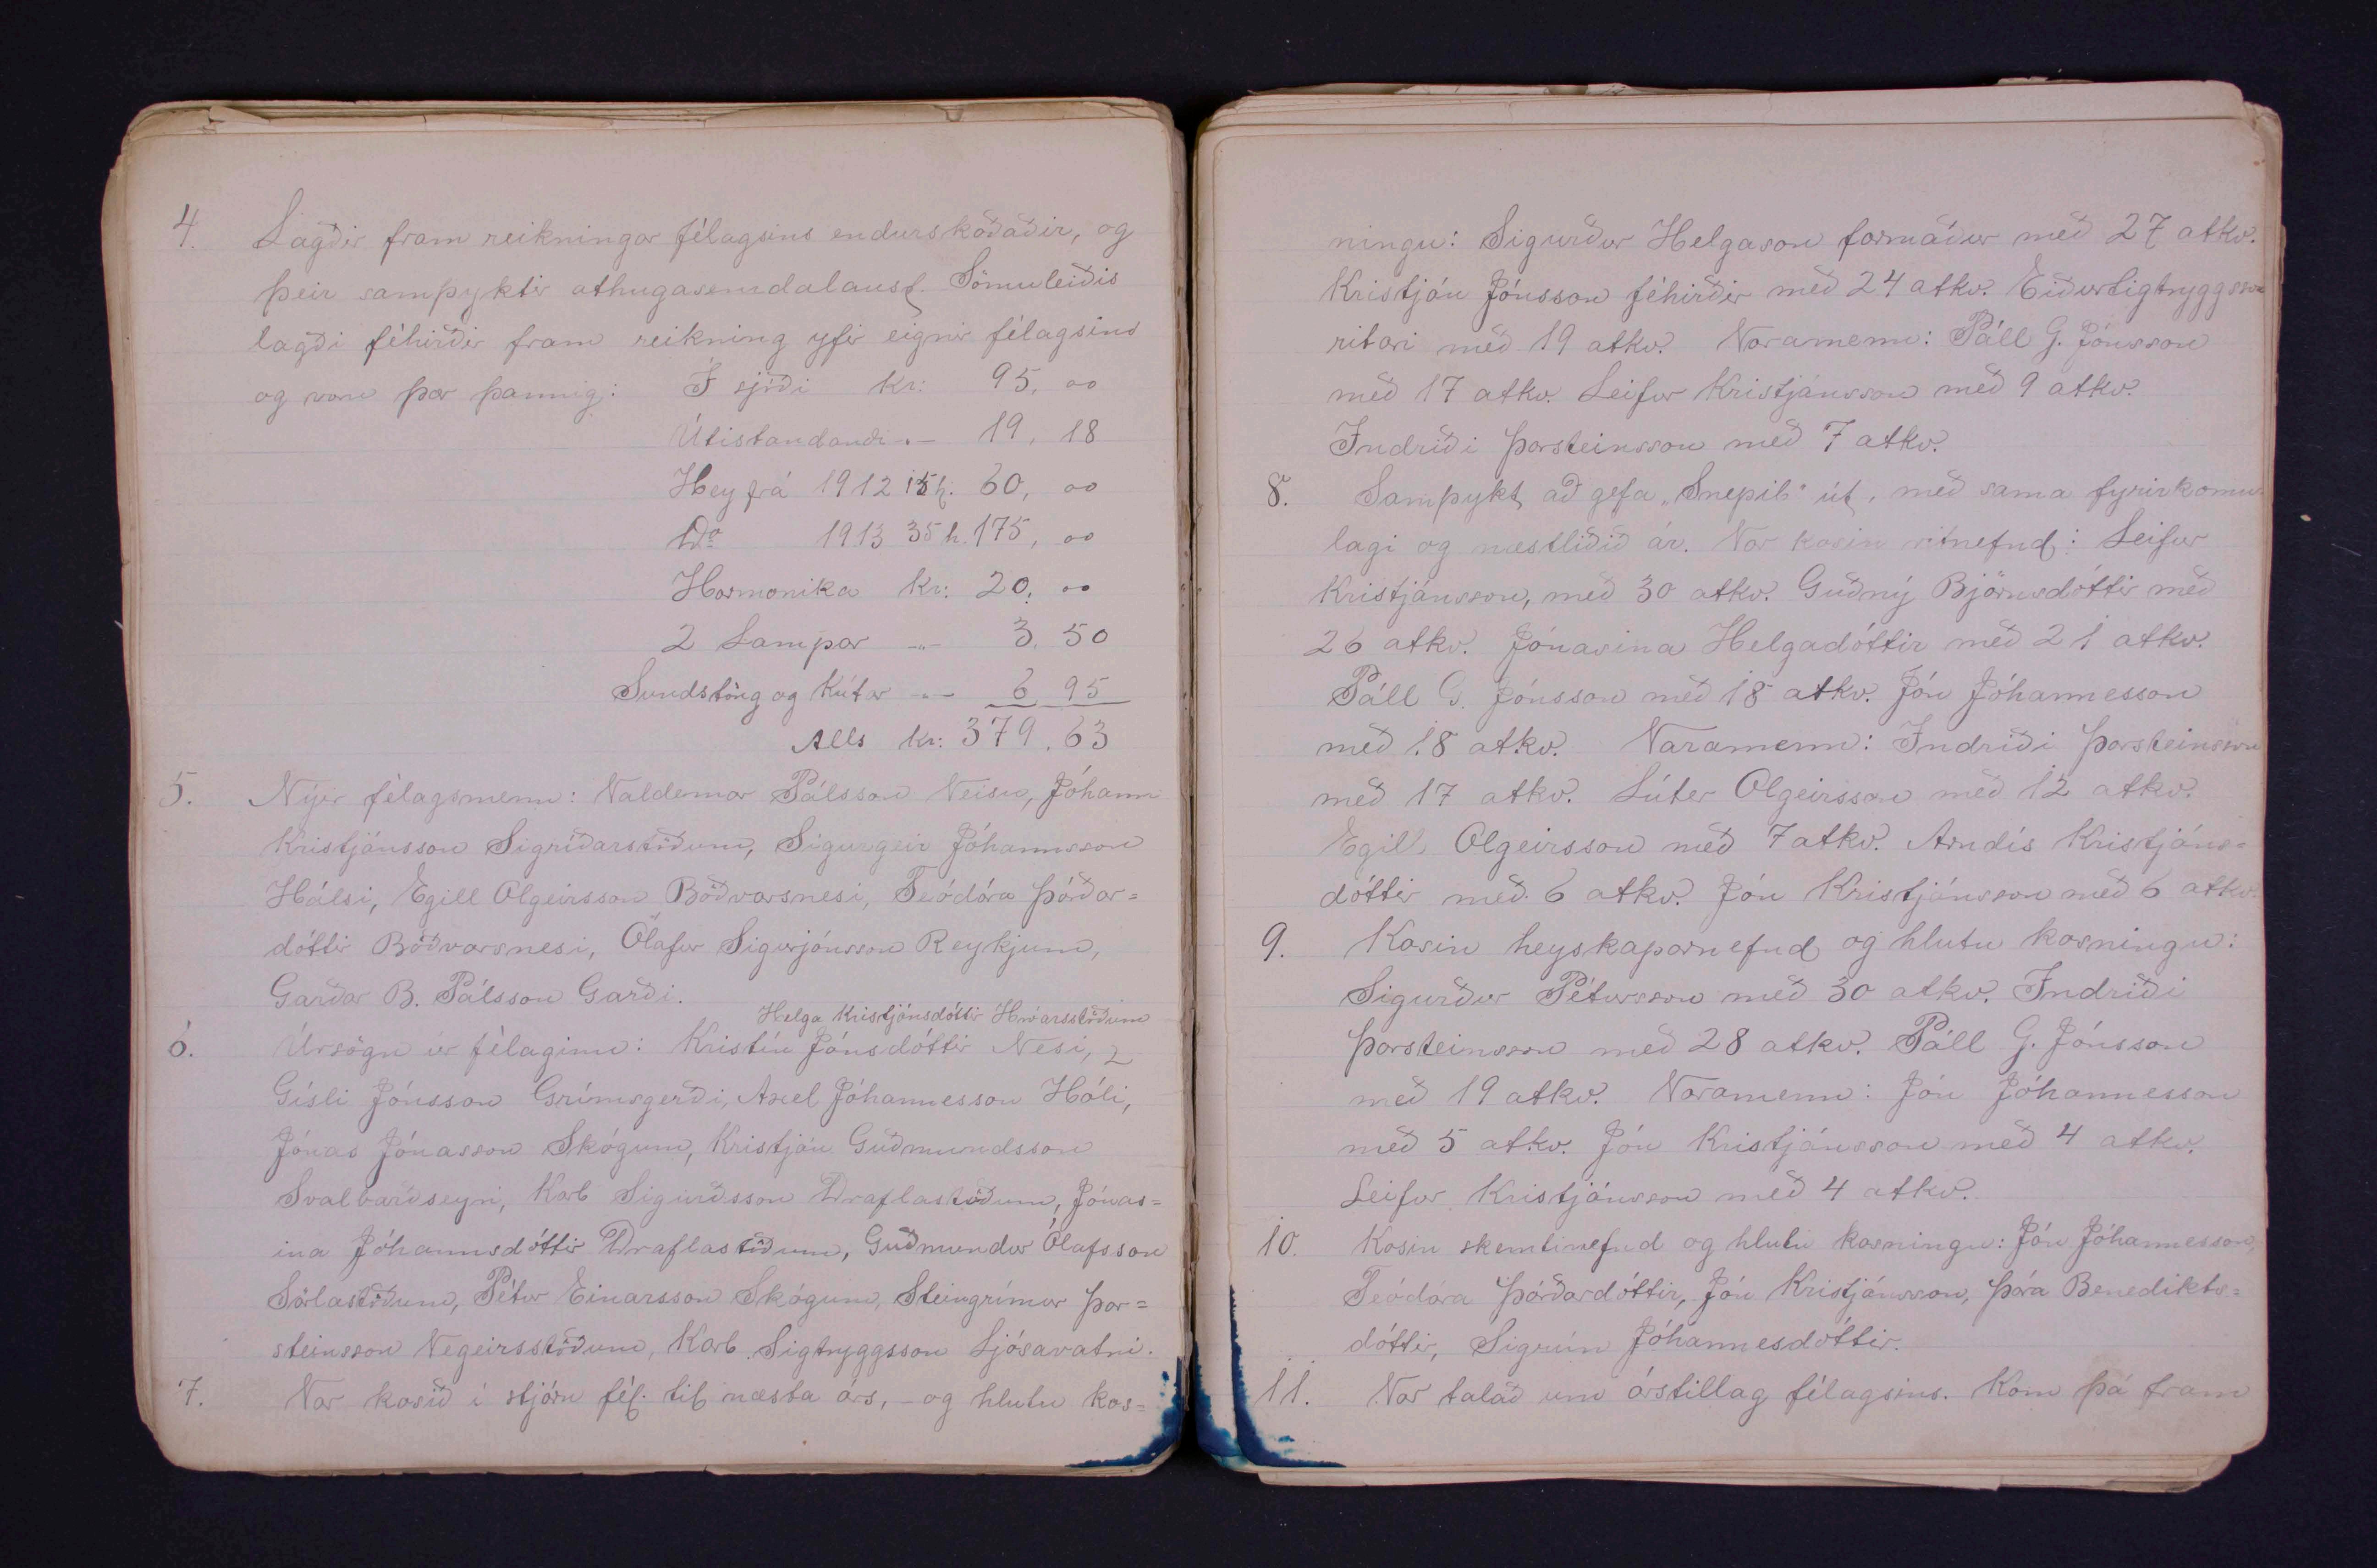 4. Lagðir fram reikningar félagsins endurskoðaðir, og
þeir samþyktir athugasemdalaust. Sömuleiðis
lagði féhirðir fram reikning yfir eignir félagsins
og voru þær þannig: Í sjóði kr: 95, 00
Útistandandi -„- 19, 18
Hey frá 1912 15 h. 60, 00
Do 1913 35 h. 175, 00
Harmonika kr: 20, 00
2 Lampar -„- 3, 50
Sundstöng og Kútar -„- 6 95
Alls kr: 379, 63
5. Nýir félagsmenn: Valdemar Pálsson Veisu, Jóhann
Kristjánsson Sigríðarstöðum, Sigurgeir Jóhannsson
Hálsi, Egill Olgeirsson Böðvarsnesi, Teódóra Þórðar=
dóttir Böðvarsnesi, Ólafur Sigurjónsson Reykjum,
Garðar B. Pálsson Garði.
Helga Kristjánsdóttir Hróarsstöðum
6. Úrsögn úr félaginu: Kristín Jónsdóttir Nesi,
Gísli Jónsson Grímsgerði, Axel Jóhannesson Hóli,
Jónas Jónasson Skógum, Kristján Guðmundsson
Svalbarðseyri, Karl Sigurðsson Draflastöðum, Jónas=
ina Jóhannsdóttir Draflastöðum, Guðmundur Ólafsson
Sörlastöðum, Pétur Einarsson Skógum, Steingrímur Þor=
steinsson Vegeirsstöðum, Karl Sigtryggsson Ljósavatni.
7. Var kosið í stjórn fél. til næsta árs, - og hlutu kos=
ningu: Sigurður Helgason formaður með 27 atkv.
Kristján Jónsson féhirðir með 24 atkv. Eiður Sigtryggsson
ritari með 19 atkv. Varamenn: Páll G. Jónsson
með 17 atkv. Leifur Kristjánsson með 9 atkv.
Indriði Þorsteinsson með 7 atkv.
8. Samþykt að gefa „Snepil" út, með sama fyrirkomu
lagi og næstliðið ár. Var kosin ritnefnd: Leifur
Kristjánsson, með 30 atkv. Guðný Björnsdóttir með
26 atkv. Jónasina Helgadóttir með 21 atkv.
Páll G. Jónsson með 18 atkv. Jón Jóhannesson
með 18 atkv. Varamenn: Indriði Þorsteinsson
með 17 atkv. Lúter Olgeirsson með 12 atkv.
Egill Olgeirsson með 7 atkv. Arndís Kristjáns=
dóttir með 6 atkv. Jón Kristjánsson með 6 atkv.
9. Kosin heyskaparnefnd og hlutu kosningu:
Sigurður Pétursson með 30 atkv. Indriði
Þorsteinsson með 28 atkv. Páll G. Jónsson
með 19 atkv. Varamenn: Jón Jóhannesson
með 5 atkv. Jón Kristjánsson með 4 atkv.
Leifur Kristjánsson með 4 atkv.
10. Kosin skemtinefnd og hlutu kosningu: Jón Jóhannesson,
Teódóra Þórðardóttir, Jón Kristjánsson, Þóra Benedikts=
dóttir, Sigrún Jóhannesdóttir.
11. Var talað um árstillag félagsins. Kom þá fram